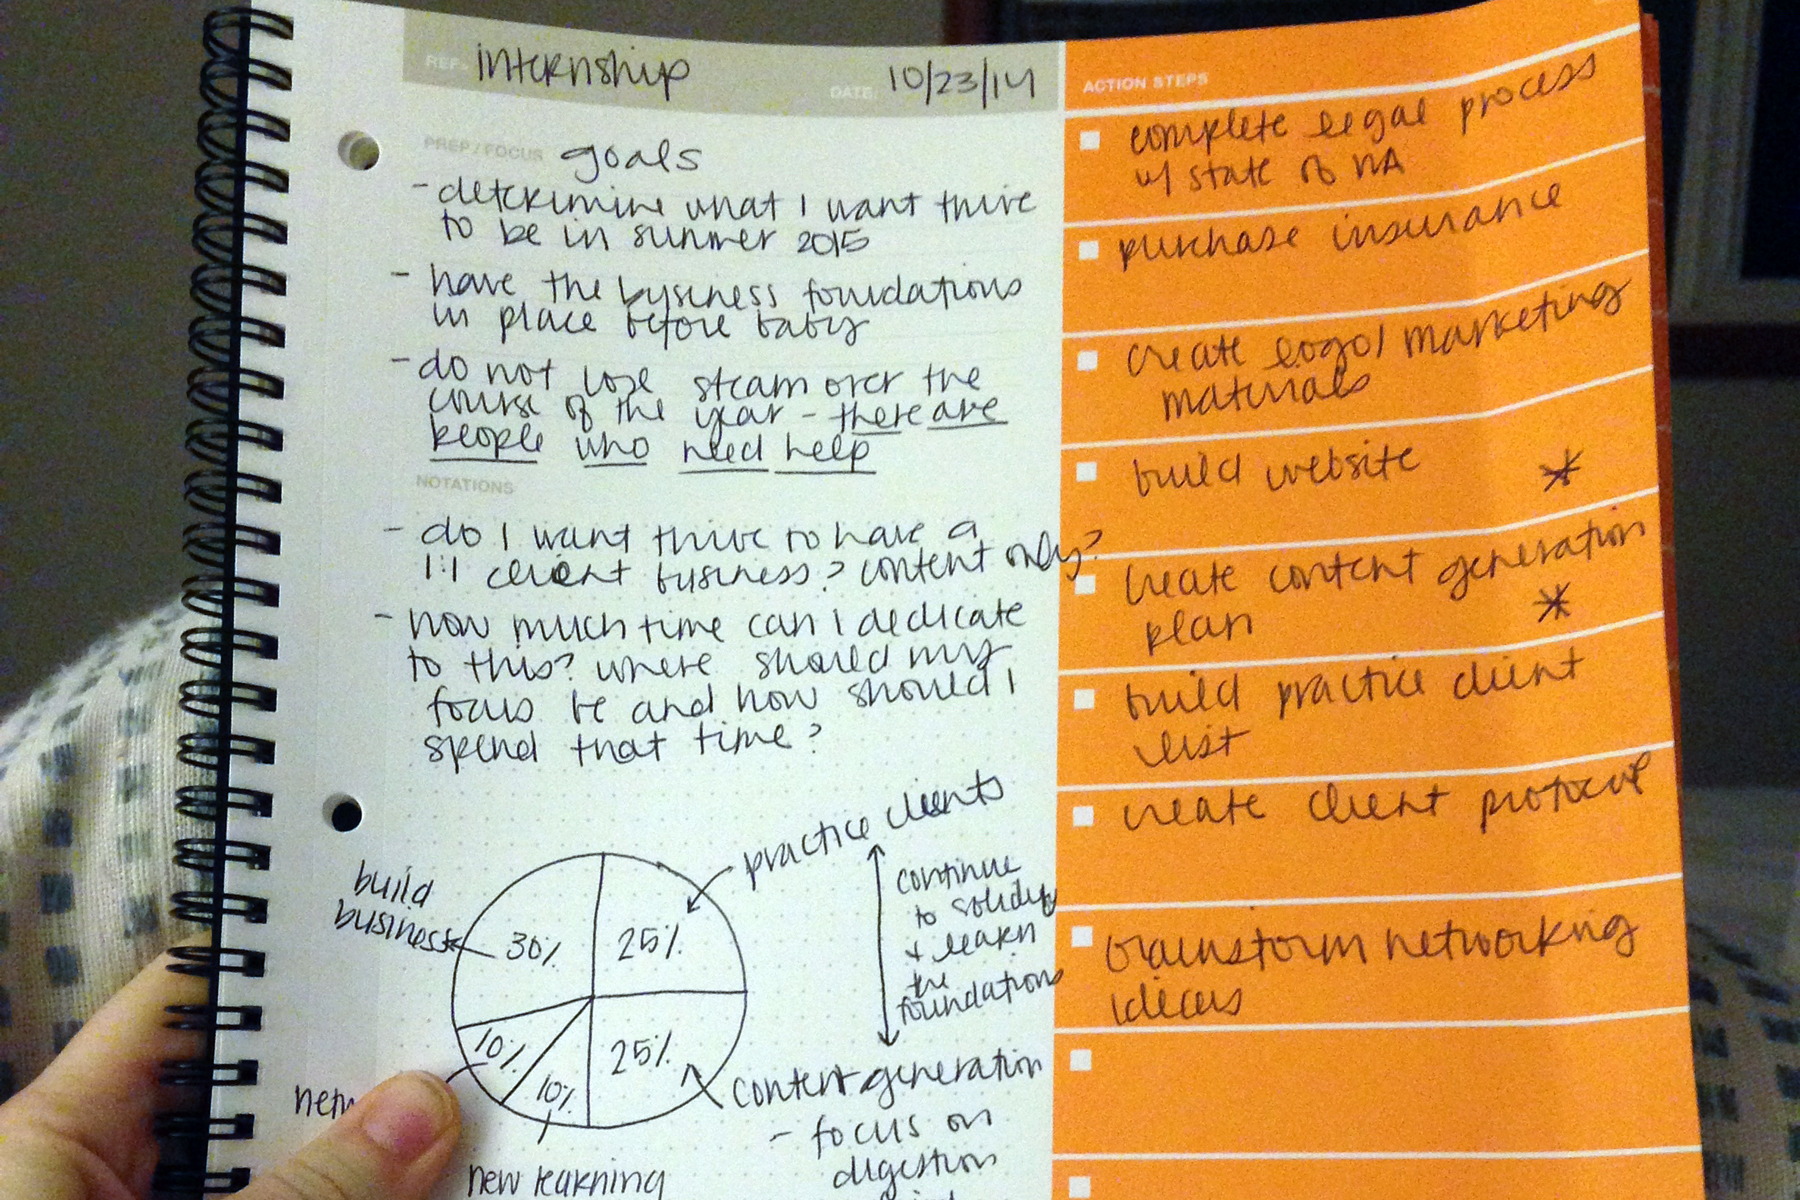 REF: internship
DATE: 10/23/14
PREP / FOCUS goals
- determine what I want thrive
to be in summer 2015
- have the business foundations
in place before baby
- do not lose steam over the
course of the year - there are
people who need help
NOTATIONS
- do I want thrive to have a
1:1 client business? content only?
- how much time can I dedicate
to this? where should my
focus be and how should I
spend that time?
practice clients
build
business
30%
25%
10%
10%
25%
continue
to solidify
+ learn
the
foundations
content generation
- focus on
digestion
new learning
ACTION STEPS
complete legal process
w/ state of MA
purchase insurance
create logo/marketing
materials
build website *
create content generation
plan *
build practice client
list
create client protocol
brainstorm networking
ideas